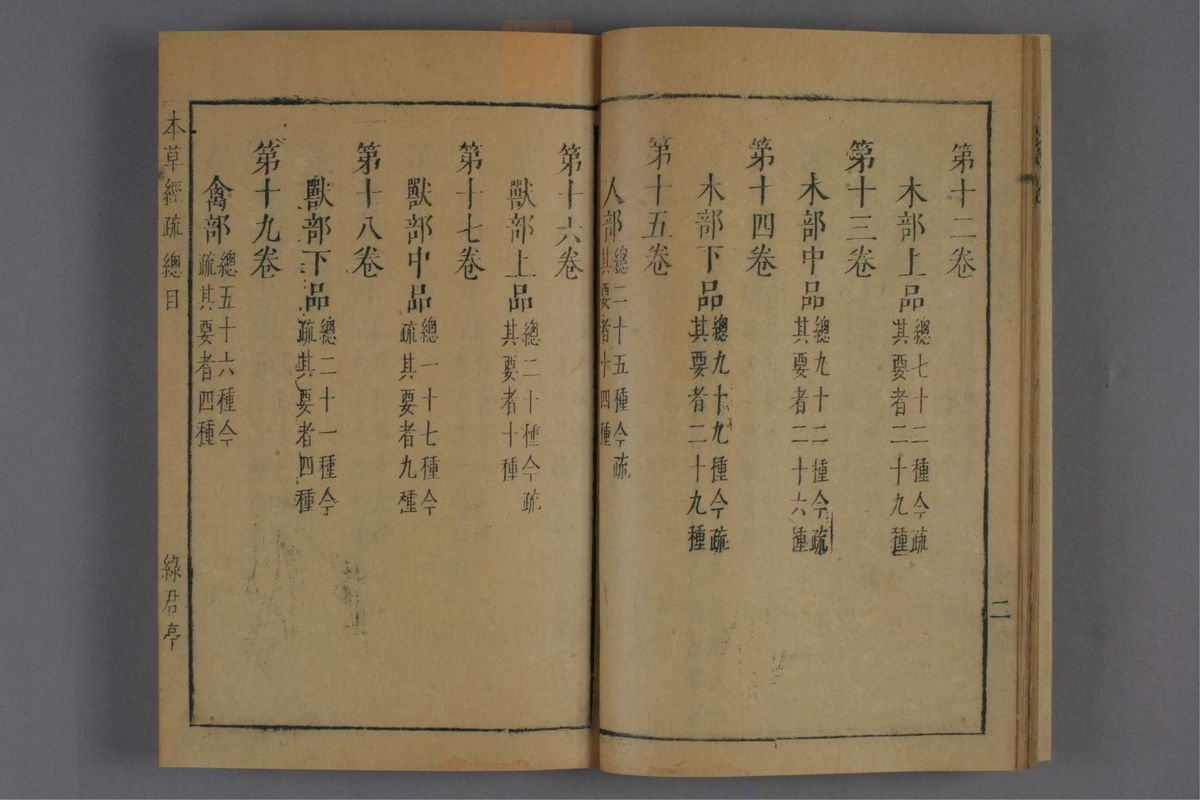 第十二卷
木部上品總七十二種今疏
其要者二十九種
第十三卷
木部中品總九十二種今疏
其要者二十六種
第十四卷
木部下品總九十九種今疏
其要者二十九種
第十五卷
人部總二十五種今疏
其要者十四種
二
第十六卷
獸部上品總二十種今疏
其要者十種
第十七卷
獸部中品總一十七種今
疏其要者九種
第十八卷
獸部下品總二十一種今
疏其要者四種
第十九卷
禽部總五十六種今
疏其要者四種
本草經疏 總目 綠君亭